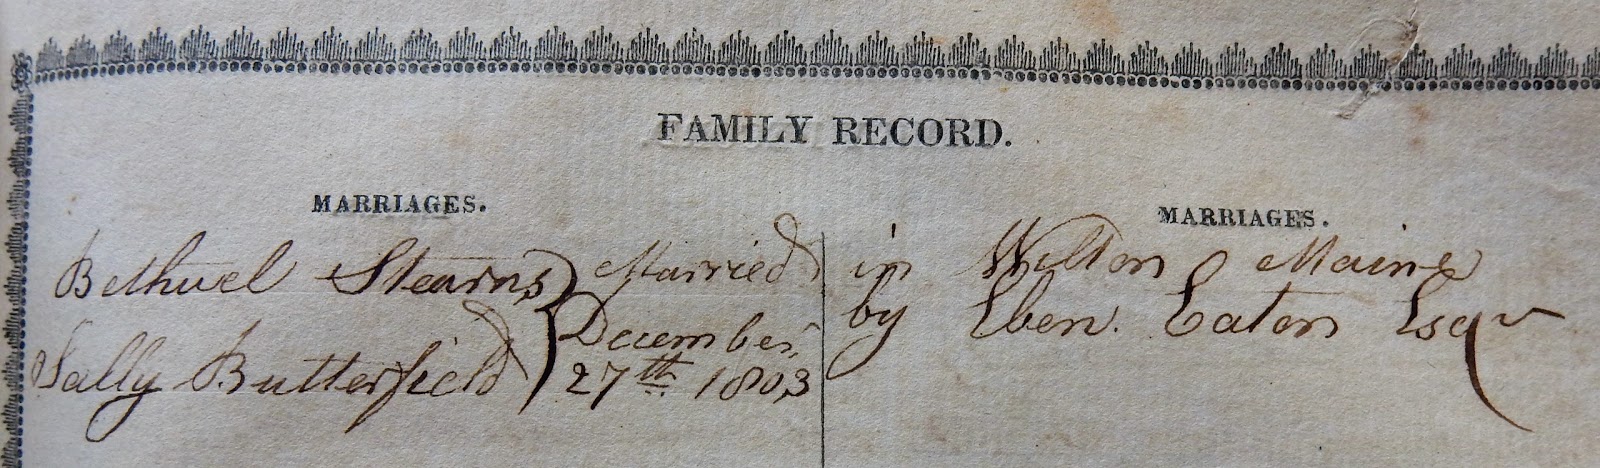 FAMILY RECORD.
MARRIAGES.
Bethuel Stearns } Married
Sally Butterfield } December,
27th 1803
MARRIAGES.
in Wilton Maine
by Eben. Eaton Esqr